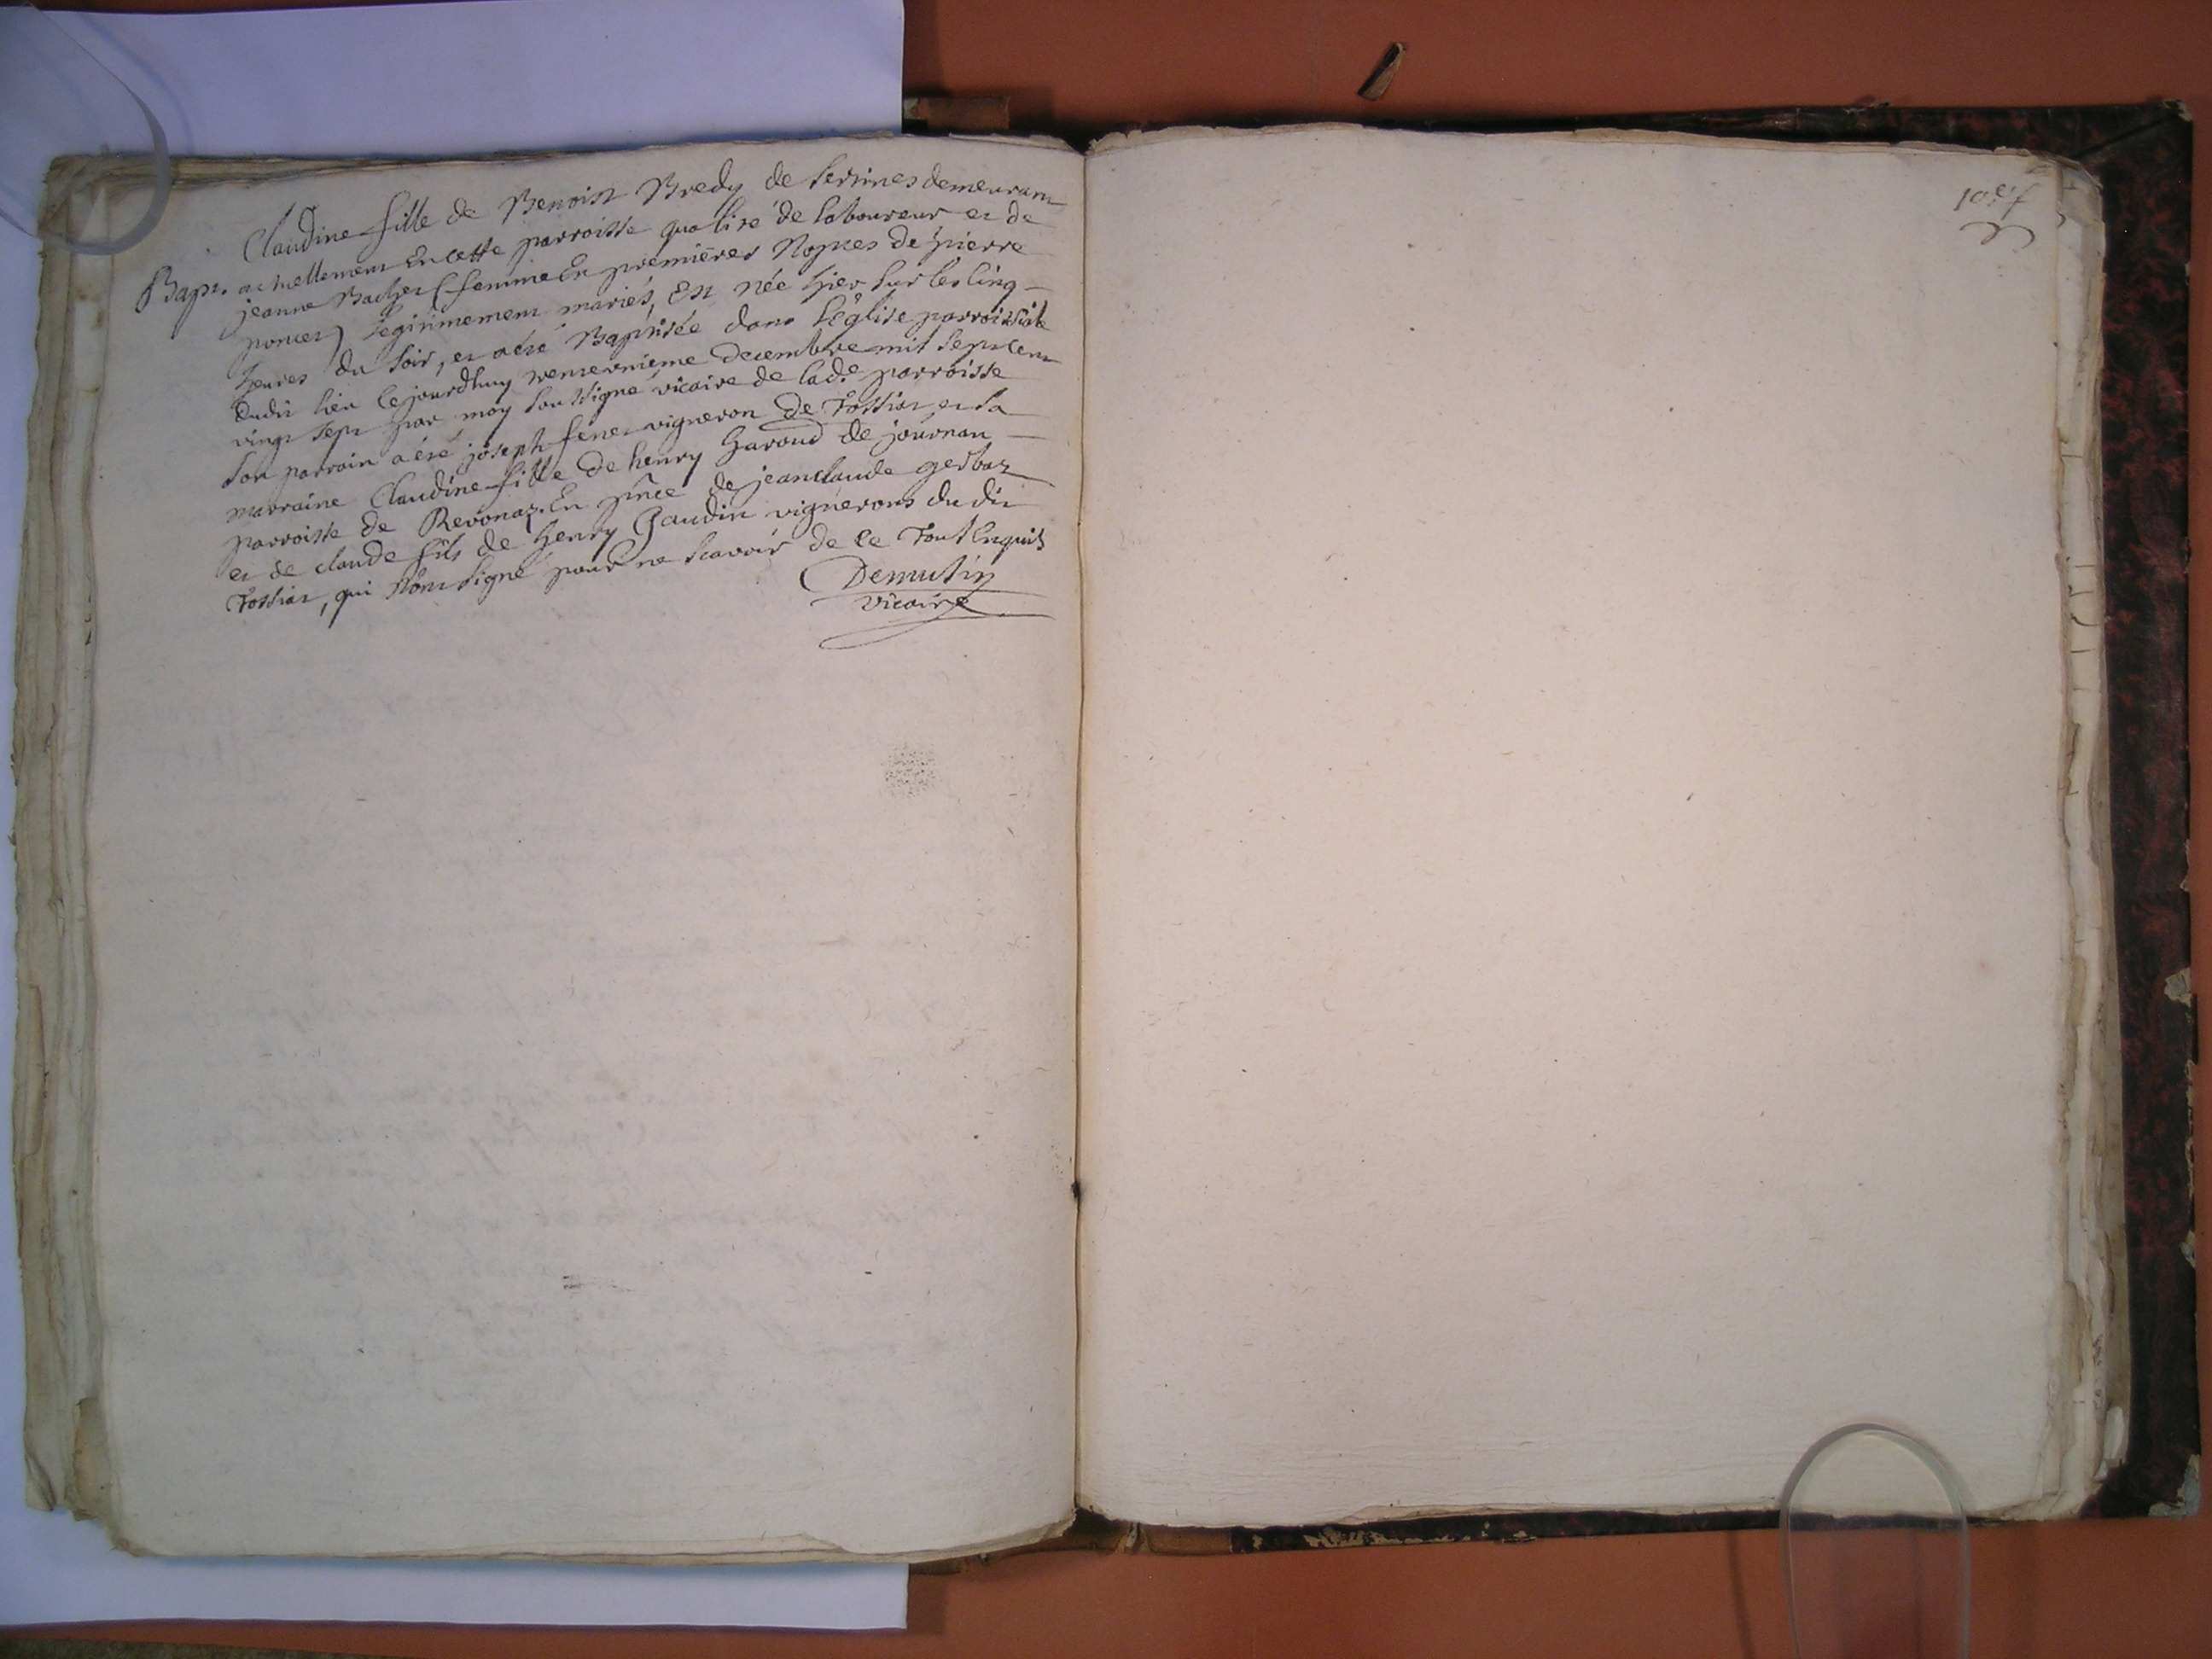 Claudine fille de Benoist Bredy de Serines demeurant
Bapt. actuellement En cette parroisse qualité de laboureur et de
jeanne Bachet (femme En premières Nopces de pierre
poncet) légitimement mariés, Est née hier sur les cinq
heures du soir, et a été Baptisée dans l'église parroissiale
dudit lieu cejourdhuy trente nieme decembre mil sept cent
vingt sept par moy soussigné vicaire de lad.e parroisse
son parrain a été joseph fenet vigneron de Tossiat et sa
marraine Claudine fille de henry Garoud de journan
parroisse de Revonaz. En pñce de jeanclaude gerbaz
et de claude fils de henry Gaudin vignerons du dit
Tossiat, qui n'ont signé pour ne scavoir de ce Tout Enquis
Demutin
vicaire